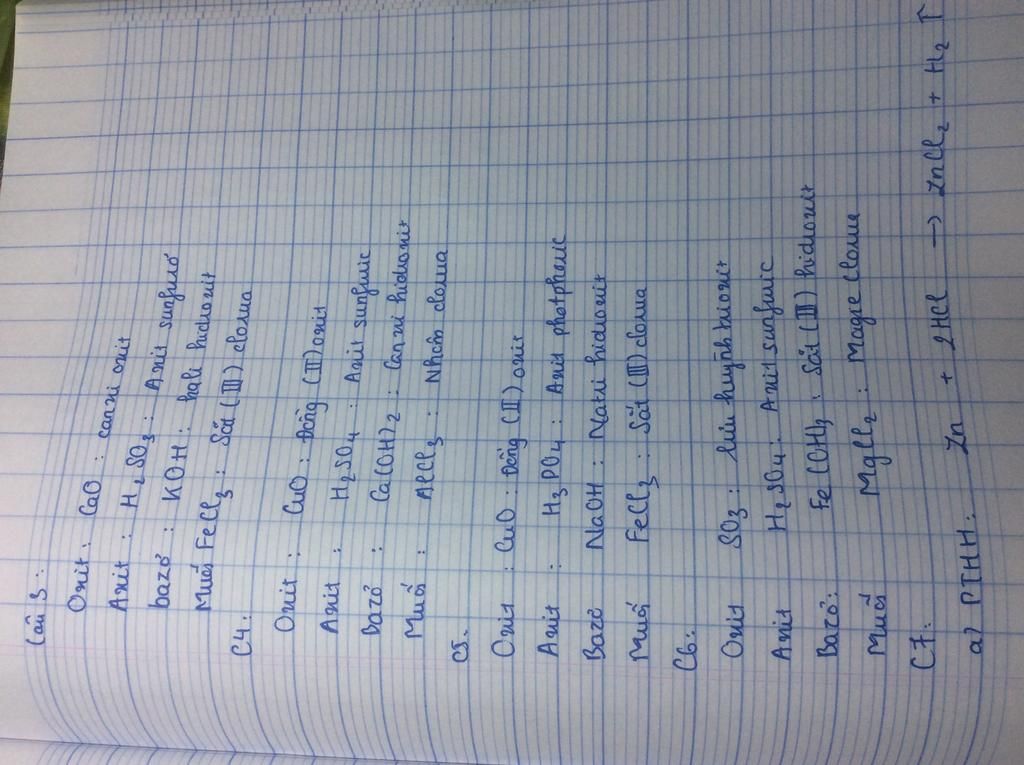 Câu 3:
Oxit : CaO : canxi oxit
Axit : H2SO3 : Axit sunfurơ
bazơ : KOH : kali hidroxit
Muối FeCl3 : Sắt (III) clorua
C4:
Oxit : CuO : Đồng (II) oxit
Axit : H2SO4 : Axit sunfuric
Bazơ : Ca(OH)2 : Canxi hidroxit
Muối : AlCl3 : Nhôm clorua
C5:
Oxit : CuO : Đồng (II) oxit
Axit : H3PO4 : Axit photphoric
Bazơ NaOH : Natri hidroxit
Muối FeCl3 : Sắt (III) clorua
C6:
Oxit SO3 : lưu huỳnh trioxit
Axit H2SO4 : Axit sunfuric
Bazơ : Fe(OH)3 : Sắt (III) hidroxit
Muối MgCl2 : Magie Clorua
C7:
a) PTHH: Zn + 2HCl → ZnCl2 + H2 ↑